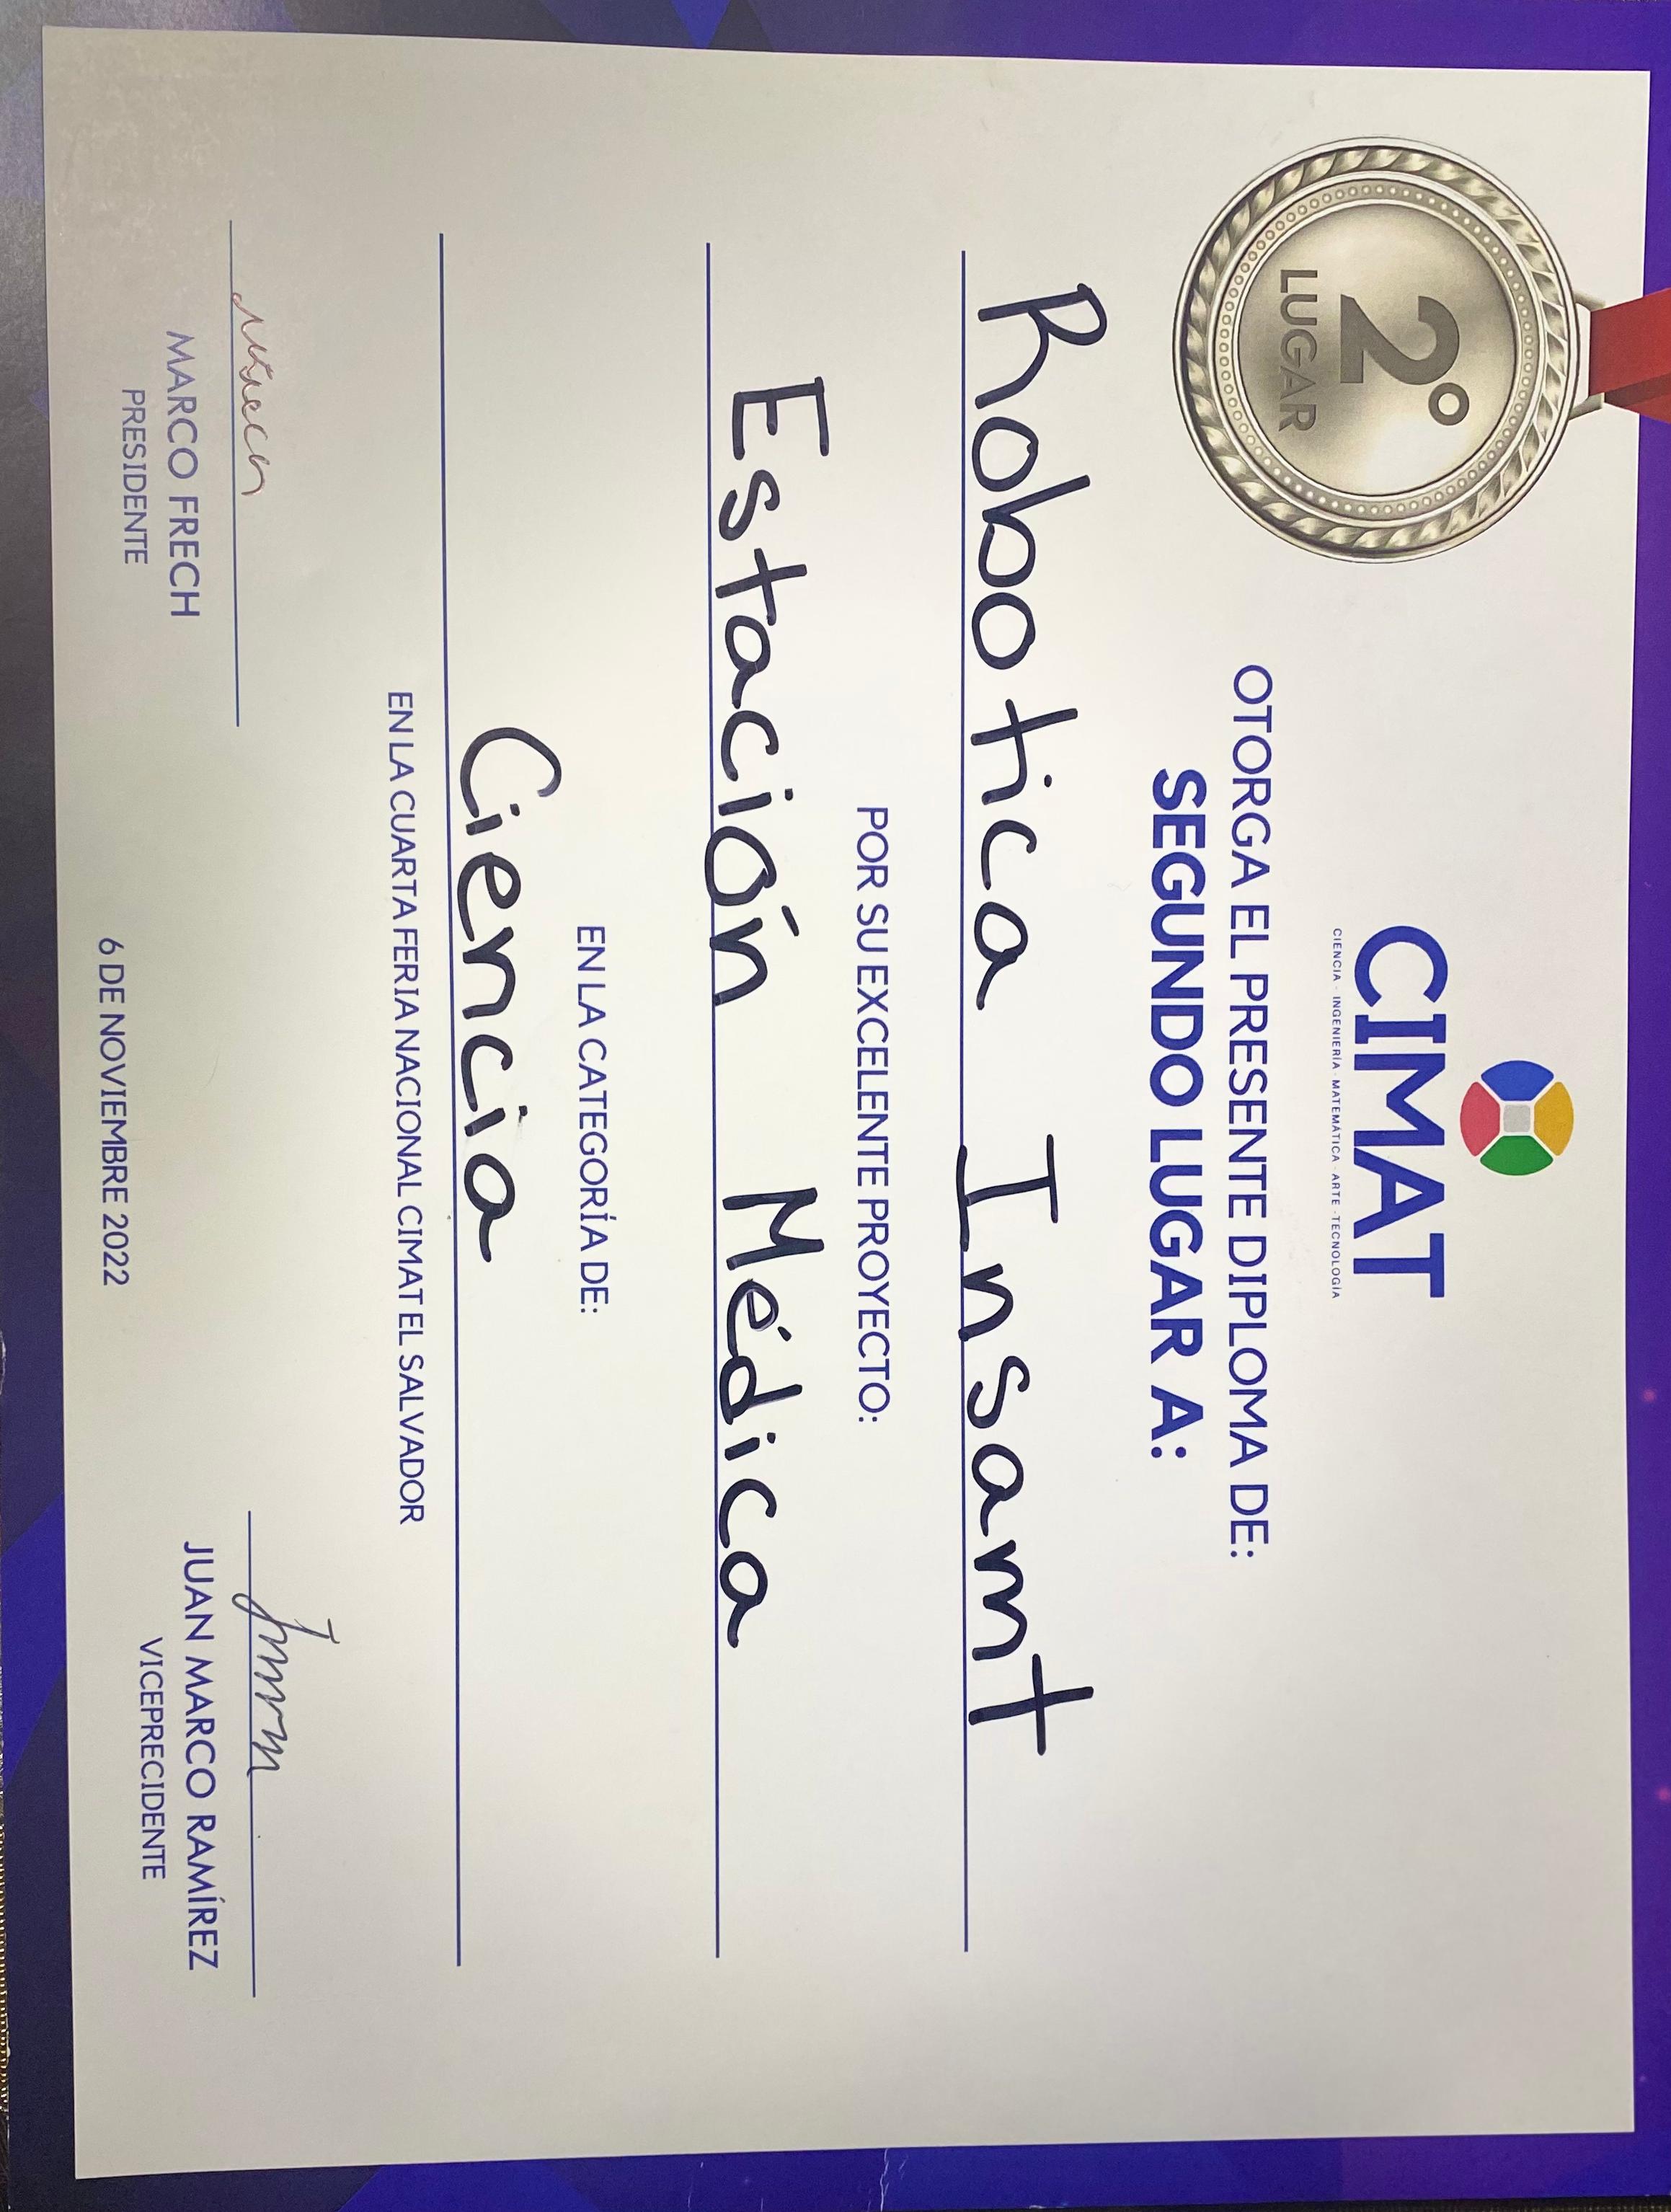 2°
LUGAR
CIMAT
CIENCIA - INGENIERÍA - MATEMÁTICA - ARTE - TECNOLOGÍA
OTORGA EL PRESENTE DIPLOMA DE:
SEGUNDO LUGAR A:
Robotica Insamt
POR SU EXCELENTE PROYECTO:
Estación Médica
EN LA CATEGORÍA DE:
Ciencia
EN LA CUARTA FERIA NACIONAL CIMAT EL SALVADOR
MARCO FRECH
PRESIDENTE
JUAN MARCO RAMÍREZ
VICEPRECIDENTE
6 DE NOVIEMBRE 2022